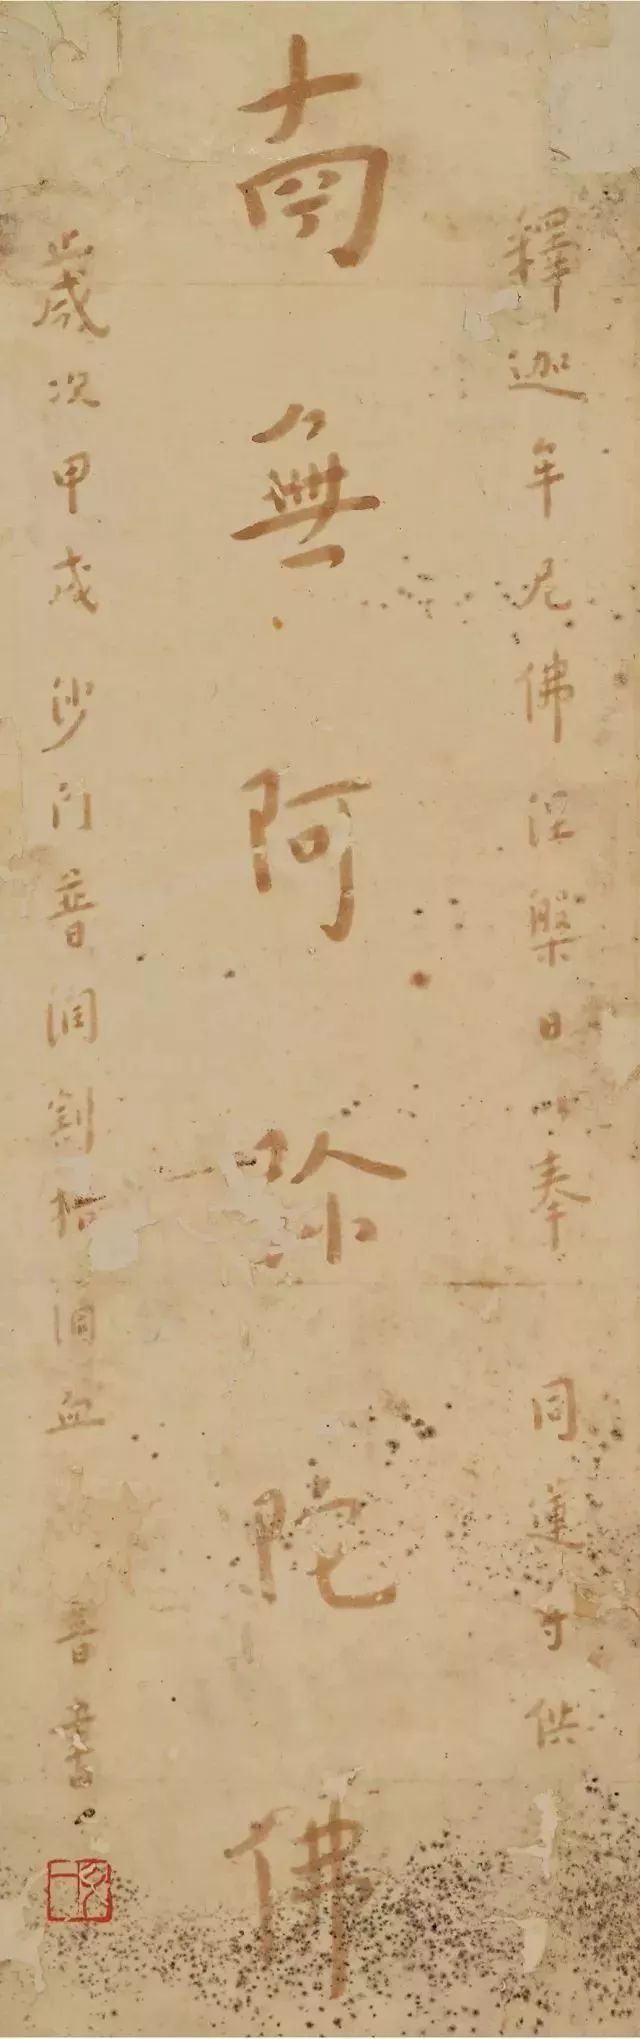 釋迦牟尼佛涅槃日 奉
同蓮寺供
南無阿彌陀佛
歲次甲戌沙門普潤割指瀝血 音書